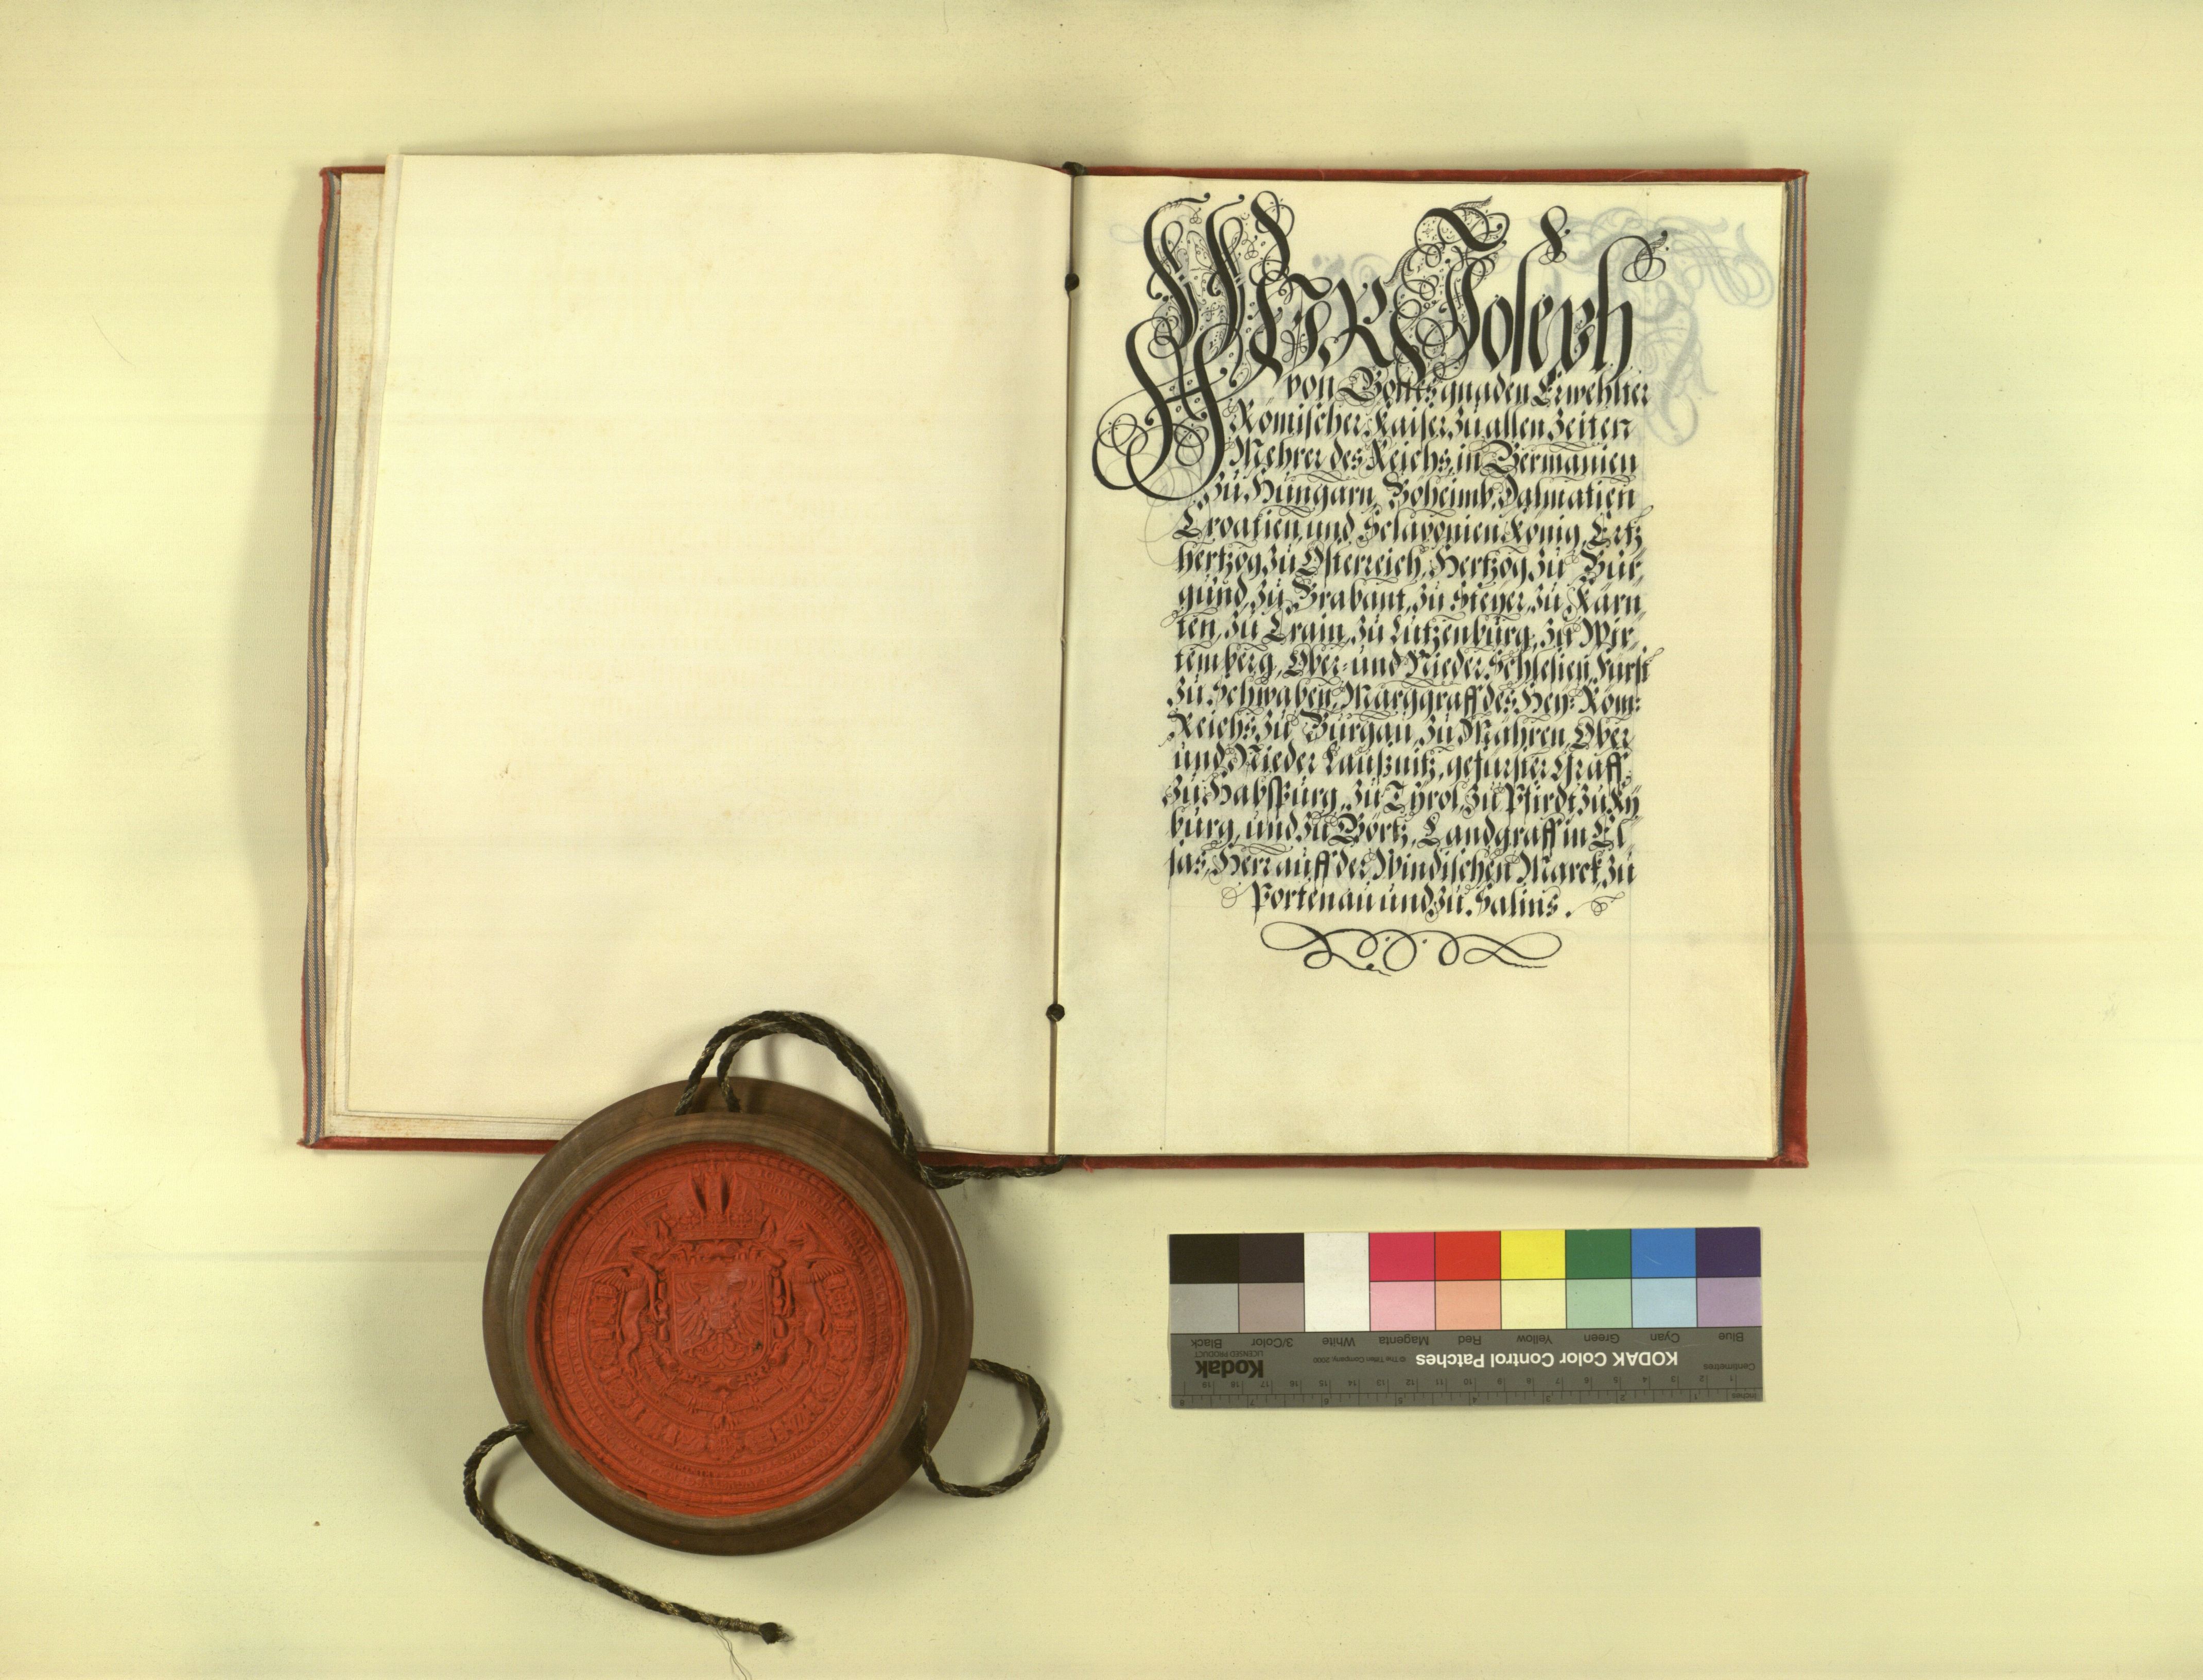 WJR Joseph
von Gottes gnaden Erwehlter
Römischer Kaiser, zu allen Zeiten
Mehrer des Reichs, in Germanien
zu Hungarn, Böheimb, Dalmatien
Croatien, und Sclavonien König, Ertz
hertzog zu Österreich, Hertzog zu Bur,
gund, zu Brabant, zu Steyer, zu Kärn,
ten, zu Crain, zu Lützenburg, zu Wir,
temberg, Ober= und Nieder Schlesien, Fürst
zu Schwaben, Marggraff des Heyl: Röm:
Reichs, zu Burgau, zu Mähren, Ober
und Nieder Laußnitz, gefürster Graff,
zu Habspurg, zu Tyrol, zu Pfirdt, zu Ky
burg, und zu Görtz, Landgraff in El,
sas, Herr auff der Windischen Marck, zu
Portenau und zu Salins.
Blue Cyan Green Yellow Red Magenta White 3/Color Black
Centimetres KODAK Color Control Patches © The Tiffen Company, 2000 Kodak
LICENSED PRODUCT
1 2 3 4 5 6 7 8 9 10 11 12 13 14 15 16 17 18 19
Inches 1 2 3 4 5 6 7 8